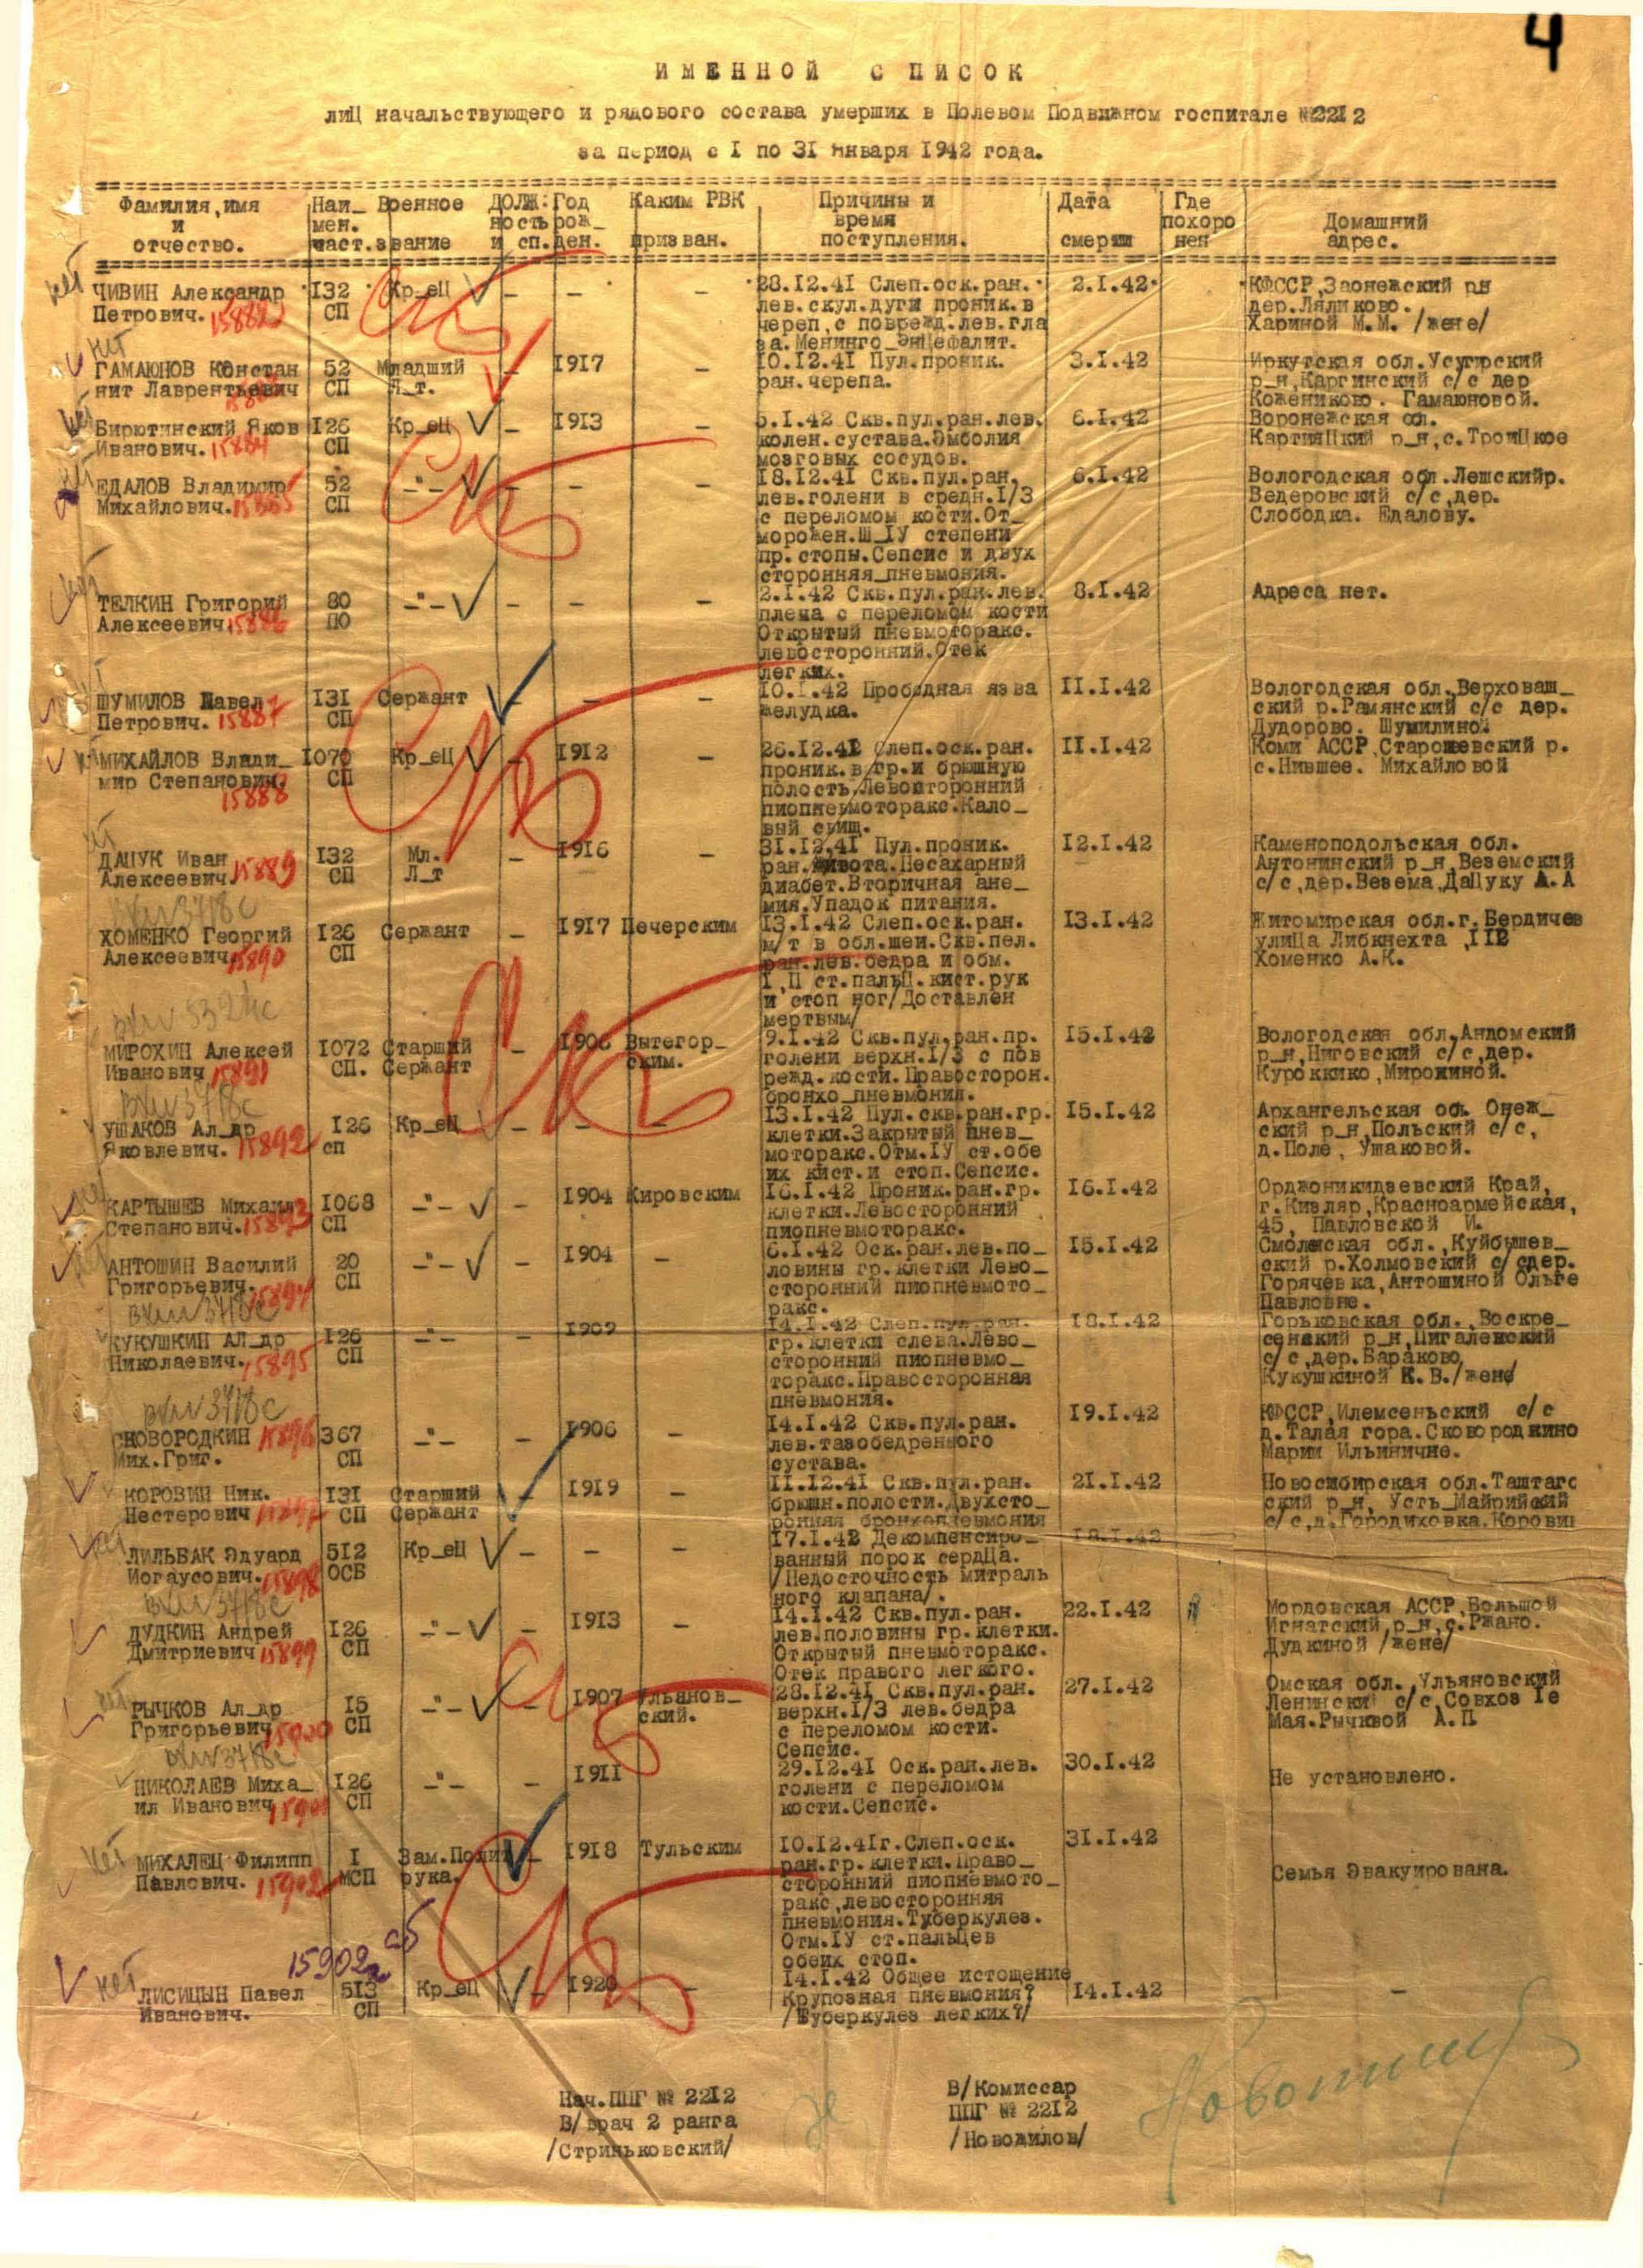 4
ИМЕННОЙ СПИСОК
лиц начальствующего и рядового состава умерших в Полевом Подвижном госпитале №2212
за период с I по 3I января I942 года.
Фамилия, имя и отчество. Наи_мен. част. Военное звание ДОЛЖ: ность и сп. Год рож_ден. Каким РВК призван. Причины и время поступления. Дата смерти Где похоро нен Домашний адрес.
нет
ЧИВИН Александр I32 Кр_ец – – – 28.I2.4I Слеп.оск.ран. 2.I.42 КФССР,Заонежский рн
Петрович. 15882 СП лев.скул.дуги проник.в дер.Ляликово.
череп,с поврежд.лев.гла Хариной М.М. /жене/
за. Менинго_Энцефалит.
нет
ГАМАЮНОВ Констан 52 Младший – I9I7 – I0.I2.4I Пул.проник. 3.I.42 Иркутская обл.
нит Лаврентьевич СП Л_т. ран.черепа. р_н,Каргинский с/с дер
Кожениково. Гамаюновой.
нет
Бирютинский Яков I26 Кр_ец – I9I3 – 5.I.42 Скв.пул.ран.лев. 6.I.42 Воронежская ол.
Иванович. 15884 СП колен.сустава.Эмболия р_н,с.Троицкое
мозговых сосудов.
ЕДАЛОВ Владимир 52 –"– – – – I8.I2.4I Скв.пул.ран. 6.I.42 Вологодская обл.Лешскийр.
Михайлович. 15885 СП лев.голени в средн.I/3 Ведеровский с/с,дер.
с переломом кости.От_ Слободка. Едалову.
морожен.Ш_IУ степени
пр.стопы.Сепсис и двух
сторонняя_пневмония.
нет
ТЕЛКИН Григорий 80 –"– – – – 2.I.42 Скв.пул.ран.лев. 8.I.42 Адреса нет.
Алексеевич. 15886 ПО плеча с переломом кости
Открытый пневмоторакс.
левосторонний.Отек
легких.
ШУМИЛОВ Павел I3I Сержант – – – I0.I.42 Прободная язва II.I.42 Вологодская обл.Верховаш_
Петрович. 15887 СП желудка. ский р.Рамянский с/с дер.
Дудорово. Шумилиной
МИХАЙЛОВ Влади_ I070 Кр_ец – I9I2 – 26.I2.4I Слеп.оск.ран. II.I.42 Коми АССР,Старошевский р.
мир Степанович. СП проник.в гр.и брюшную с.Нившее. Михайловой
15888 полость,Левосторонний
пиопневмоторакс.Кало_
вый свищ.
ДАЦУК Иван 15889 I32 Мл. – I9I6 – 3I.I2.4I Пул.проник. I2.I.42 Каменоподольская обл.
Алексеевич. СП Л_т ран.живота.Несахарный Антонинский р_н,Веземский
диабет.Вторичная ане_ с/с,дер.Везема,Дацуку А.А
мия.Упадок питания.
вхш 3718с
ХОМЕНКО Георгий I26 Сержант – I9I7 Печерским I3.I.42 Слеп.оск.ран. I3.I.42 Житомирская обл.г.Бердичев
Алексеевич 15890 СП м/т в обл.шеи.Скв.пел. улица Либкнехта ,II2
ран.лев.бедра и обм. Хоменко А.К.
I,П ст.пальц.кист.рук
и стоп ног/Доставлен
мертвым/
МИРОХИН Алексей I072 Старший – I906 Вытегор_ 9.I.42 Скв.пул.ран.пр. I5.I.42 Вологодская обл.Андомский
Иванович 15891 СП. Сержант ским. голени верхн.I/3 с пов р_н,Ниговский с/с,дер.
режд.кости.Правосторон. Куроккико,Мирохиной.
бронхо_пневмония.
вхш 3718с
УШАКОВ Ал_др I26 Кр_ец – – – I3.I.42 Пул.скв.ран.гр. I5.I.42 Архангельская об. Онеж_
Яковлевич. 15892 сп клетки.Закрытый пнев_ ский р_н,Польский с/с,
моторакс.Отм.IУ ст.обе д.Поле, Ушаковой.
их кист.и стоп.Сепсис.
КАРТЫШЕВ Михаил I068 –"– – I904 Кировским I6.I.42 Проник.ран.гр. I6.I.42 Орджоникидзевский Край,
Степанович. 15893 СП клетки.Левосторонний г.Кизляр,Красноармейская,
пиопневмоторакс. 45, Павловской И.
АНТОШИН Василий 20 –"– – I904 – 6.I.42 Оск.ран.лев.по_ I5.I.42 Смоленская обл.,Куйбышев_
Григорьевич. 15894 СП ловины гр.клетки Лево_ ский р.Холмовский с/сдер.
сторонний пиопневмото_ Горячевка,Антошиной Ольге
ракс. Павловне.
вхш 3718с
КУКУШКИН Ал_др I26 –"– – I902 I4.I.42 Слеп.пул.ран. I8.I.42 Горьковская обл.,Воскре_
Николаевич. 15895 СП гр.клетки слева.Лево_ сенский р_н,Пигалевский
сторонний пиопневмо_ с/с,дер.Бараково,
торакс.Правосторонная Кукушкиной К.В./жене
пневмония.
вхш 3718с
СКОВОРОДКИН 15896 367 –"– – I906 – I4.I.42 Скв.пул.ран. I9.I.42 КФССР,Илемсеньский с/с
Мих.Григ. СП лев.тазобедренного д.Талая гора.Сковородкино
сустава. Марии Ильиничне.
КОРОВИН Ник. I3I Старший – I9I9 – II.I2.4I Скв.пул.ран. 2I.I.42 Новосибирская обл.Таштаго
Нестерович 15897 СП Сержант брюшн.полости.Двухсто_ ский р_н, Усть_Майрийский
ронняя бронхопневмония с/с,д.Городиховка.Коровин
ЛИЛЬБАК Эдуард 5I2 Кр_ец – – – I7.I.42 Декомпенсиро_ I8.I.42
Иогаусович. 15898 ОСБ ванный порок сердца.
/Недосточность митраль
ного клапана/.
вхш 3718с
ДУДКИН Андрей I26 –"– – I9I3 – I4.I.42 Скв.пул.ран. 22.I.42 Мордовская АССР,Большой
Дмитриевич 15899 СП лев.половины гр.клетки. Игнатский,р_н,с.Ржано.
Открытый пневмоторакс. Дудкиной /жене/
Отек правого легкого.
РЫЧКОВ Ал_др I5 –"– – I907 Ульянов_ 28.I2.4I Скв.пул.ран. 27.I.42 Омская обл.,Ульяновский
Григорьевич 15900 СП ский. верхн.I/3 лев.бедра Ленински с/с,Совхоз Iе
с переломом кости. Мая.Рычквой А.П
Сепсис.
вхш 3718с
НИКОЛАЕВ Миха_ I26 –"– – I9II 29.I2.4I Оск.ран.лев. 30.I.42 Не установлено.
ил Иванович 15901 СП голени с переломом
кости.Сепсис.
нет
МИХАЛЕЦ Филипп I Зам.Полит – I9I8 Тульским I0.I2.4Iг.Слеп.оск. 3I.I.42 Семья Эвакуирована.
Павлович. 15902 МСП рука. ран.гр.клетки.Право_
сторонний пиопневмото_
ракс,левосторонняя
пневмония.Туберкулез.
Отм.IУ ст.пальцев
обеих стоп.
15902а
нет ЛИСИЦЫН Павел 5I3 Кр_ец – I920 – I4.I.42 Общее истощение I4.I.42 –
Иванович. СП Крупозная пневмония?
/Туберкулез легких?/
Нач.ППГ № 22I2 В/Комиссар
В/врач 2 ранга ППГ № 22I2
/Стриньковский/ /Новожилов/